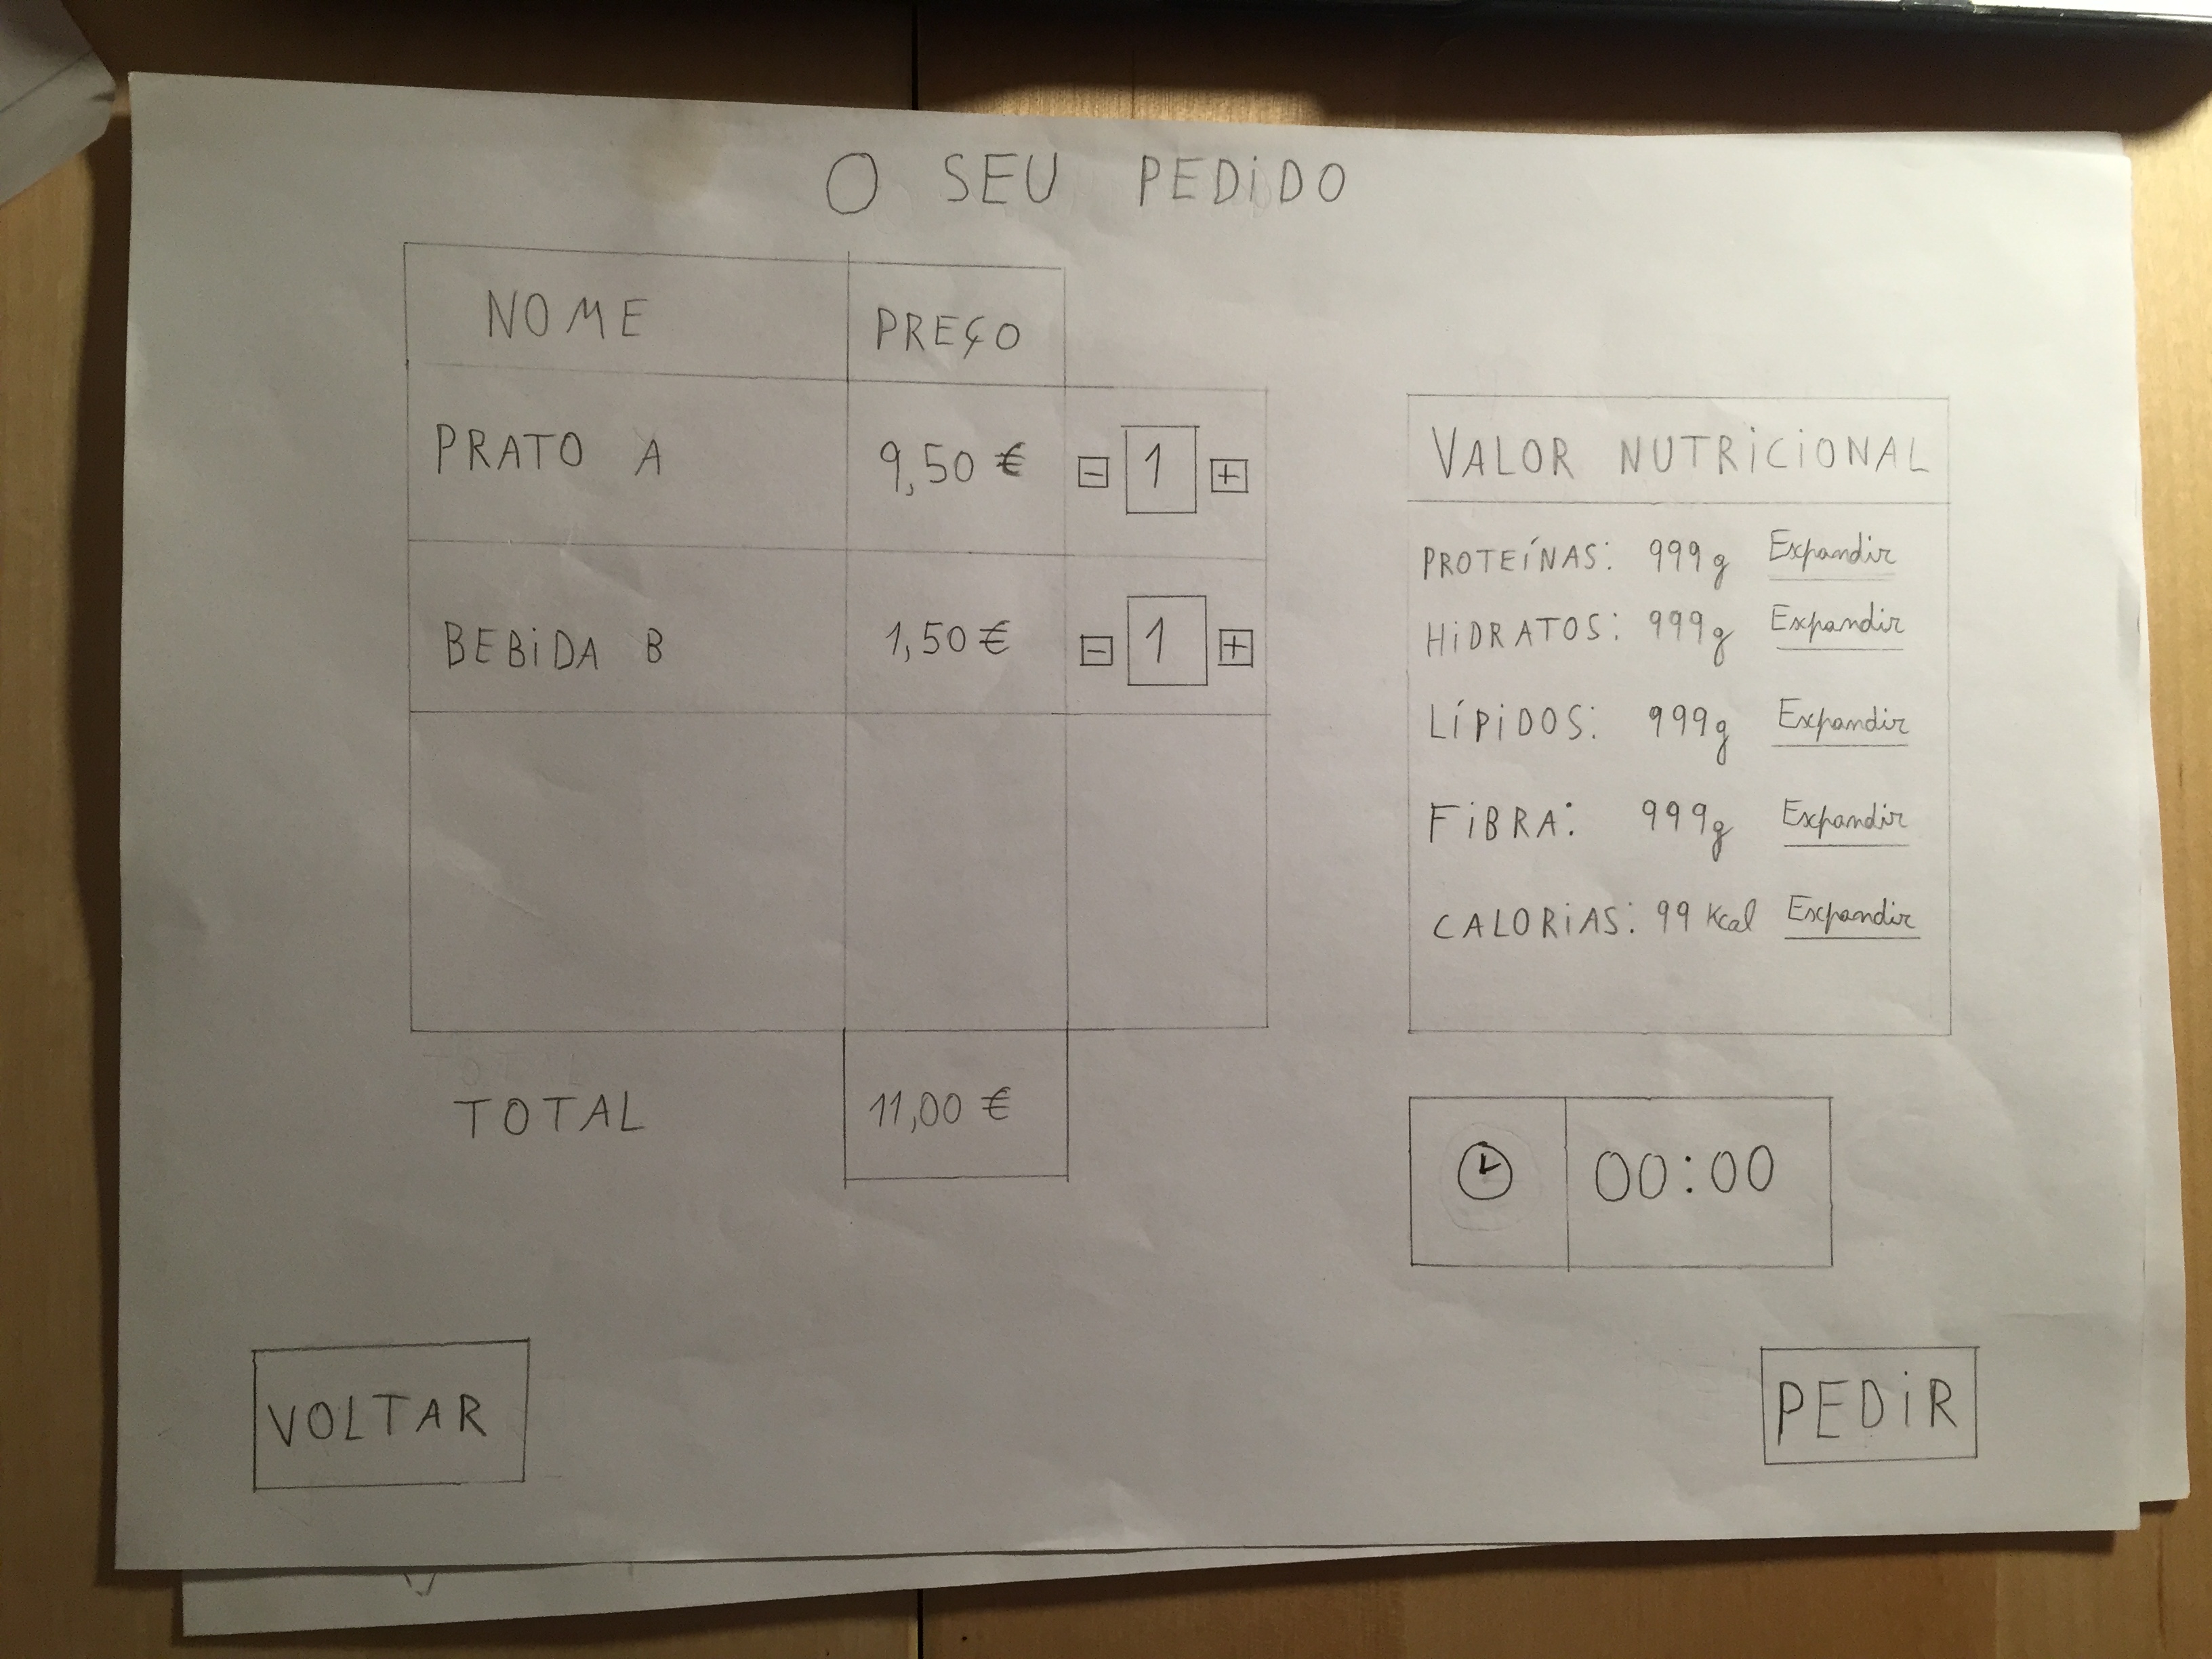 O SEU PEDiDO
NOME PREÇO
PRATO A 9,50 € - 1 +
BEBiDA B 1,50 € - 1 +
TOTAL 11,00 €
VALOR NUTRiCiONAL
PROTEÍNAS: 999g Expandir
HiDRATOS: 999g Expandir
LÍPiDOS: 999g Expandir
FiBRA: 999g Expandir
CALORiAS: 99 Kcal Expandir
00:00
VOLTAR
PEDiR